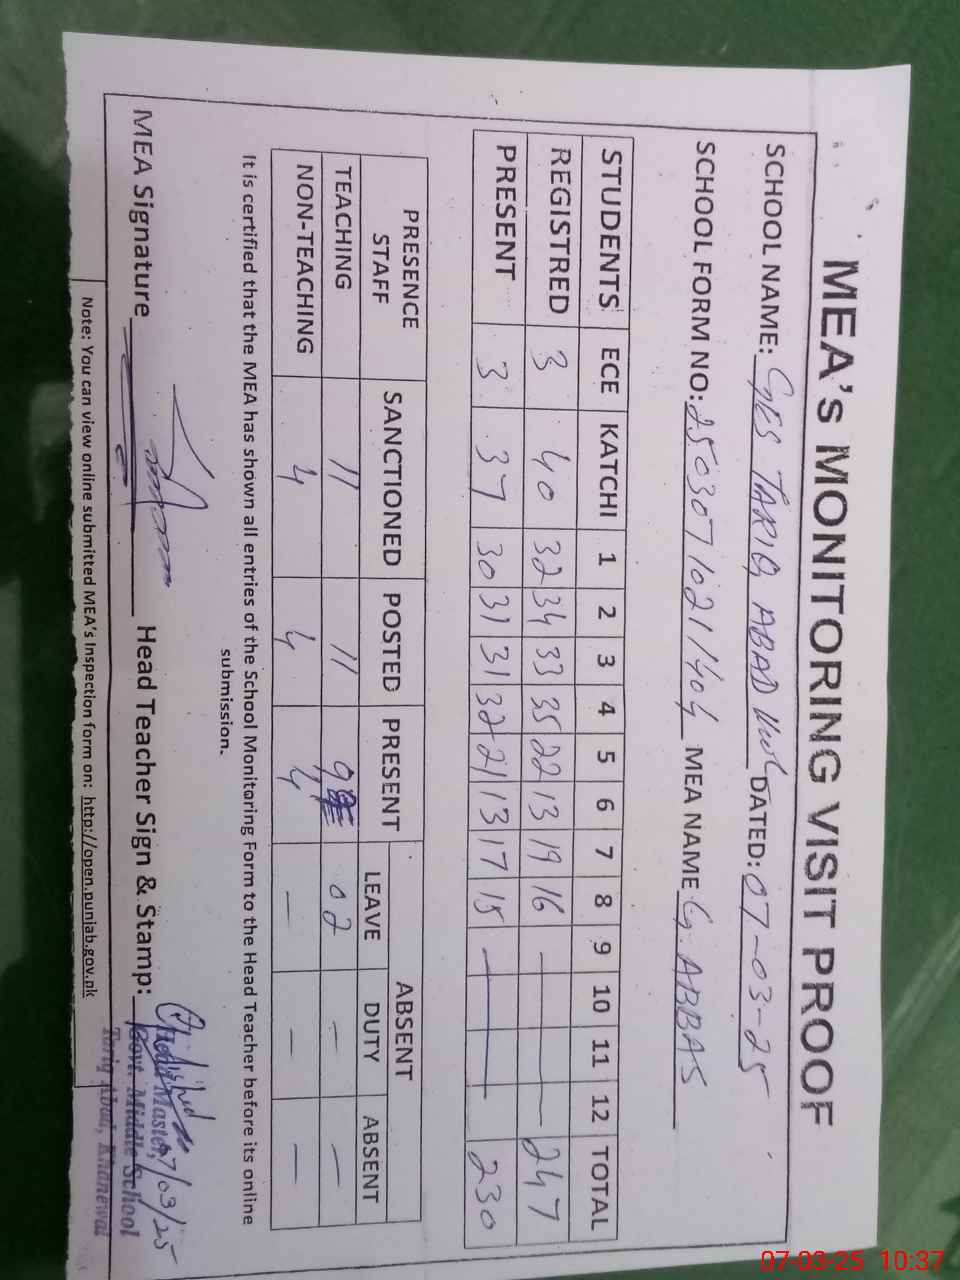 MEA's MONITORING VISIT PROOF
SCHOOL NAME: GES TARIQ ABAD DATED: 07-03-25
SCHOOL FORM NO: 25030710211404 MEA NAME G. ABBAS
STUDENTS ECE KATCHI 1 2 3 4 5 6 7 8 9 10 11 12 TOTAL
REGISTRED 3 40 32 34 33 35 22 13 19 16 — 247
PRESENT 3 37 30 31 31 32 21 13 17 15 — 230
PRESENCE STAFF SANCTIONED POSTED PRESENT ABSENT
LEAVE DUTY ABSENT
TEACHING 11 11 9 02 — —
NON-TEACHING 4 4 4 — — —
It is certified that the MEA has shown all entries of the School Monitoring Form to the Head Teacher before its online
submission.
MEA Signature Head Teacher Sign & Stamp: 07/03/25
Head Master,
Govt. Middle School
Tariq Abad, Khanewal
Note: You can view online submitted MEA's Inspection form on: http://open.punjab.gov.pk
07-03-25 10:37